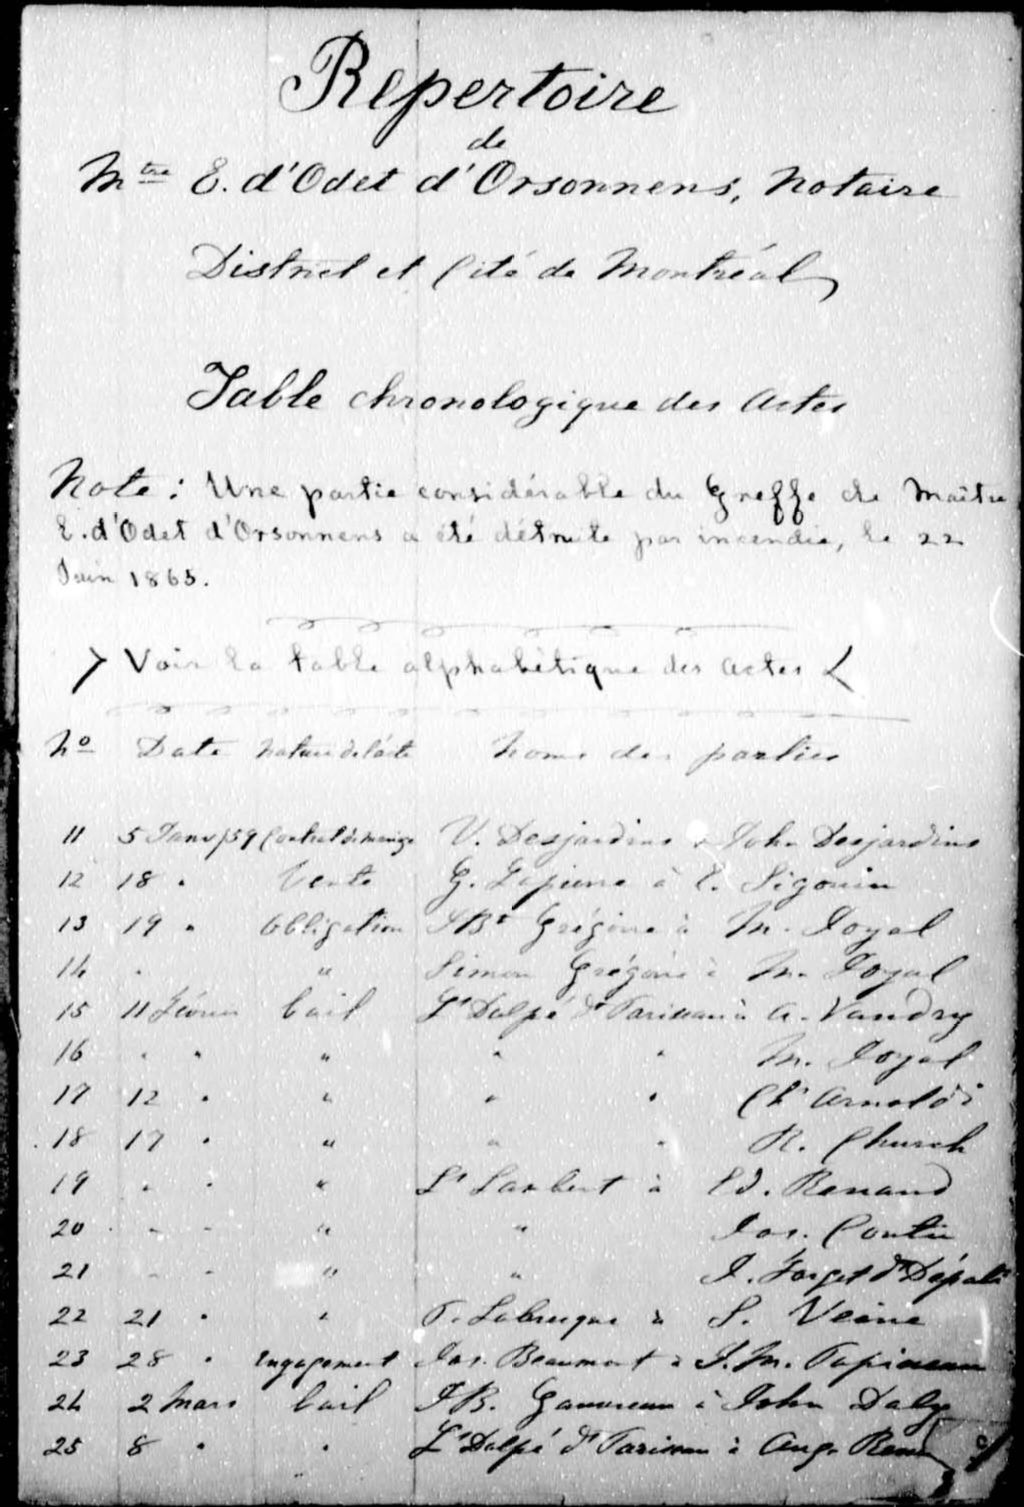 Repertoire
de
Mtre E. d'Odet d'Orsonnens, Notaire
District et Cité de Montréal
Table chronologique des Actes
Note: Une partie considérable du Greffe de Maître
E. d'Odet d'Orsonnens a été détruite par incendie, le 22
Juin 1865.
Voir la table alphabétique des actes
No Date Nature de l'acte Noms des parties
11 5 Janv/59 Contrat de mariage V. Desjardins & John Desjardins
12 18 " Vente G. Lajeune à E. Sigouin
13 19 " Obligation J Bte Grégoire à M. Joyal
14 " " Simon Grégoire à M. Joyal
15 11 Février bail Ls Dalpé dt Pariseau à A. Vandry
16 " " " " " M. Joyal
17 12 " " " " Chs Arnoldi
18 17 " " " " R. Church
19 " " " Ls Lambert à Ed. Renaud
20 " " " " Jos. Coutu
21 " " " " J. Forget dt Dépatie
22 21 " " F. Labrecque à S. Veine
23 28 " Engagement Jas. Beaumont à J. M. Papineau
24 2 Mars bail J B. Gauvreau à John Daly
25 8 " " Ls Dalpé dt Pariseau à Aug.